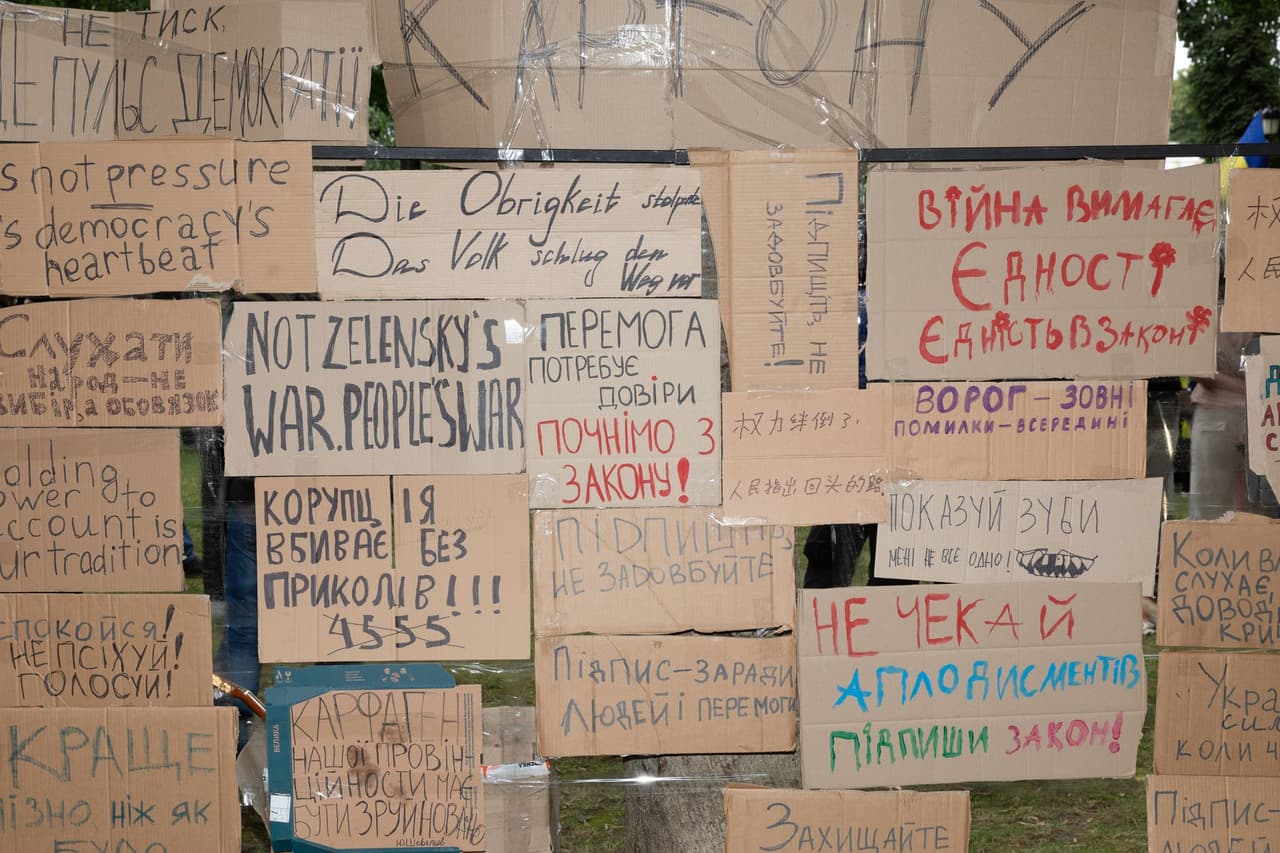 КАРТОНУ
НЕ ТИСК,
ПУЛЬС ДЕМОКРАТІЇ
not pressure
democracy's
heartbeat
Die Obrigkeit stolperte
Das Volk schlug den
Weg vor
Підпишіть, не
задовбуйте!
ВІЙНА ВИМАГАЄ
ЄДНОСТІ
ЄДНІСТЬ В ЗАКОНІ
权
人民
Слухати
народ—не
вибір, а обовязок
NOT ZELENSKY'S
WAR. PEOPLE'S WAR
ПЕРЕМОГА
ПОТРЕБУЄ
ДОВІРИ
ПОЧНІМО З
ЗАКОНУ!
权力绊倒了,
人民指出回头的路
ВОРОГ – ЗОВНІ
ПОМИЛКИ – ВСЕРЕДИНІ
olding
ower to
account is
ur tradition
КОРУПЦІЯ
ВБИВАЄ БЕЗ
ПРИКОЛІВ!!!
4555
ПІДПИШИ,
НЕ ЗАДОВБУЙТЕ
ПОКАЗУЙ ЗУБИ
МЕНІ НЕ ВСЕ ОДНО!
Коли вл
слухає,
довод
кри
спокойся!
НЕ ПСІХУЙ!
ГОЛОСУЙ!
Підпис–заради
людей і перемоги
НЕ ЧЕКАЙ
АПЛОДИСМЕНТІВ
ПІДПИШИ ЗАКОН!
Укра
сил
коли ч
КРАЩЕ
пізно, ніж як
було
ВЕЛИКА
КАРФАГЕН
НАШОЇ ПРОВІН
ЦІЙНОСТИ МАЄ
БУТИ ЗРУЙНОВАНО
Ю.Шевельов
Захищайте
Підпис–
людей